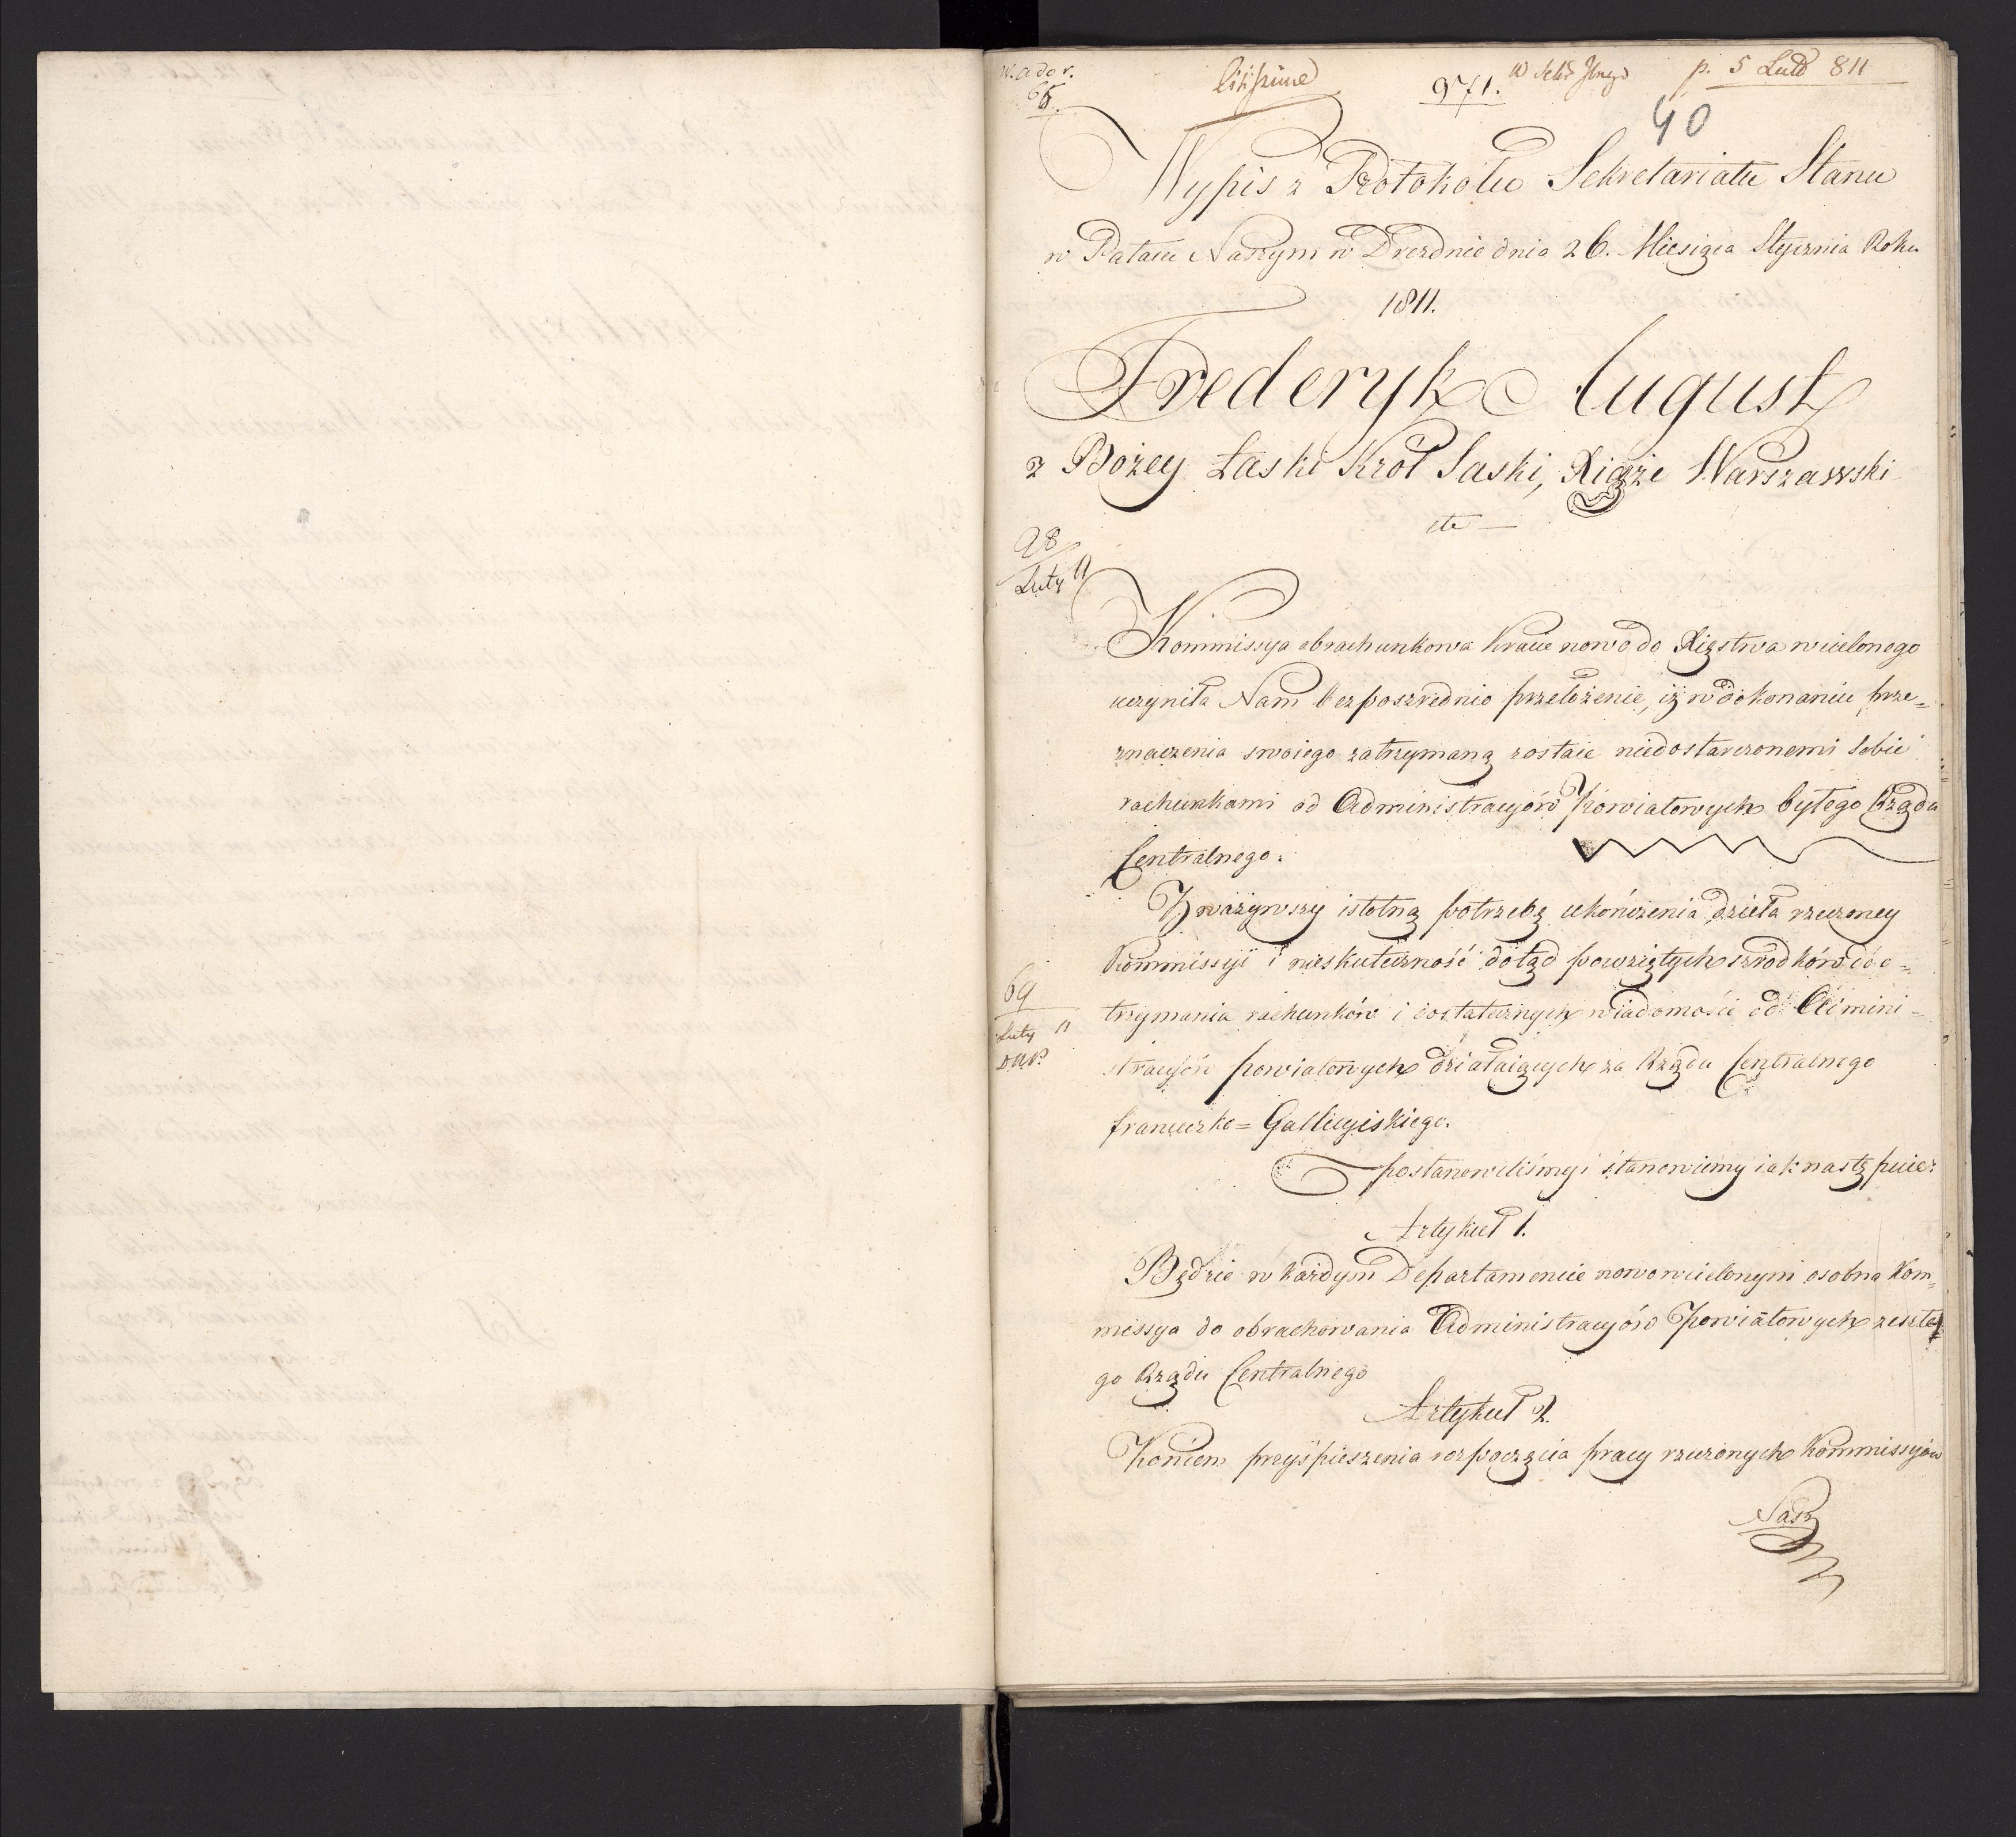 65.
citissime
971.
p. 5 Lut 811
40
Wypis z Protokołu Sekretariatu Stanu
w Pałacu Naszym w Dreznie dnia 26. Miesiąca Stycznia Roku
1811.
Frederyk August
z Bożey Łaski Król Saski, Xiąże Warszawski
etc
98
Luty 11
Kommissya obrachunkowa Kraiu nowo do Xięstwa wcielonego
uczyniła Nam bezposzrednio przełożenie, iż w dokonaniu prze=
znaczenia swoiego zatrzymaną zostaie niedostarczonemi sobie
rachunkami od Administracyów Powiatowych byłego Rządu
Centralnego.
Zważywszy istotną potrzebę ukończenia dzieła rzeczoney
Kommissyi i nieskuteczność dotąd powziętych szrodków do o=
69
Luty 11
trzymania rachunków i dostatecznych wiadomości od Admini=
stracyów powiatowych działaiących za Rządu Centralnego
francuzko=Gallicyiskiego.
postanowiliśmy i stanowimy iak następuie:
Artykuł 1.
Będzie w każdym Departamencie nowowcielonym osobna Kom=
missya do obrachowania Administracyów Powiatowych zeszłe
go Rządu Centralnego
Artykuł 2.
Końcem przyśpieszenia rozpoczęcia pracy rzeczonych Kommissyów
Nasz